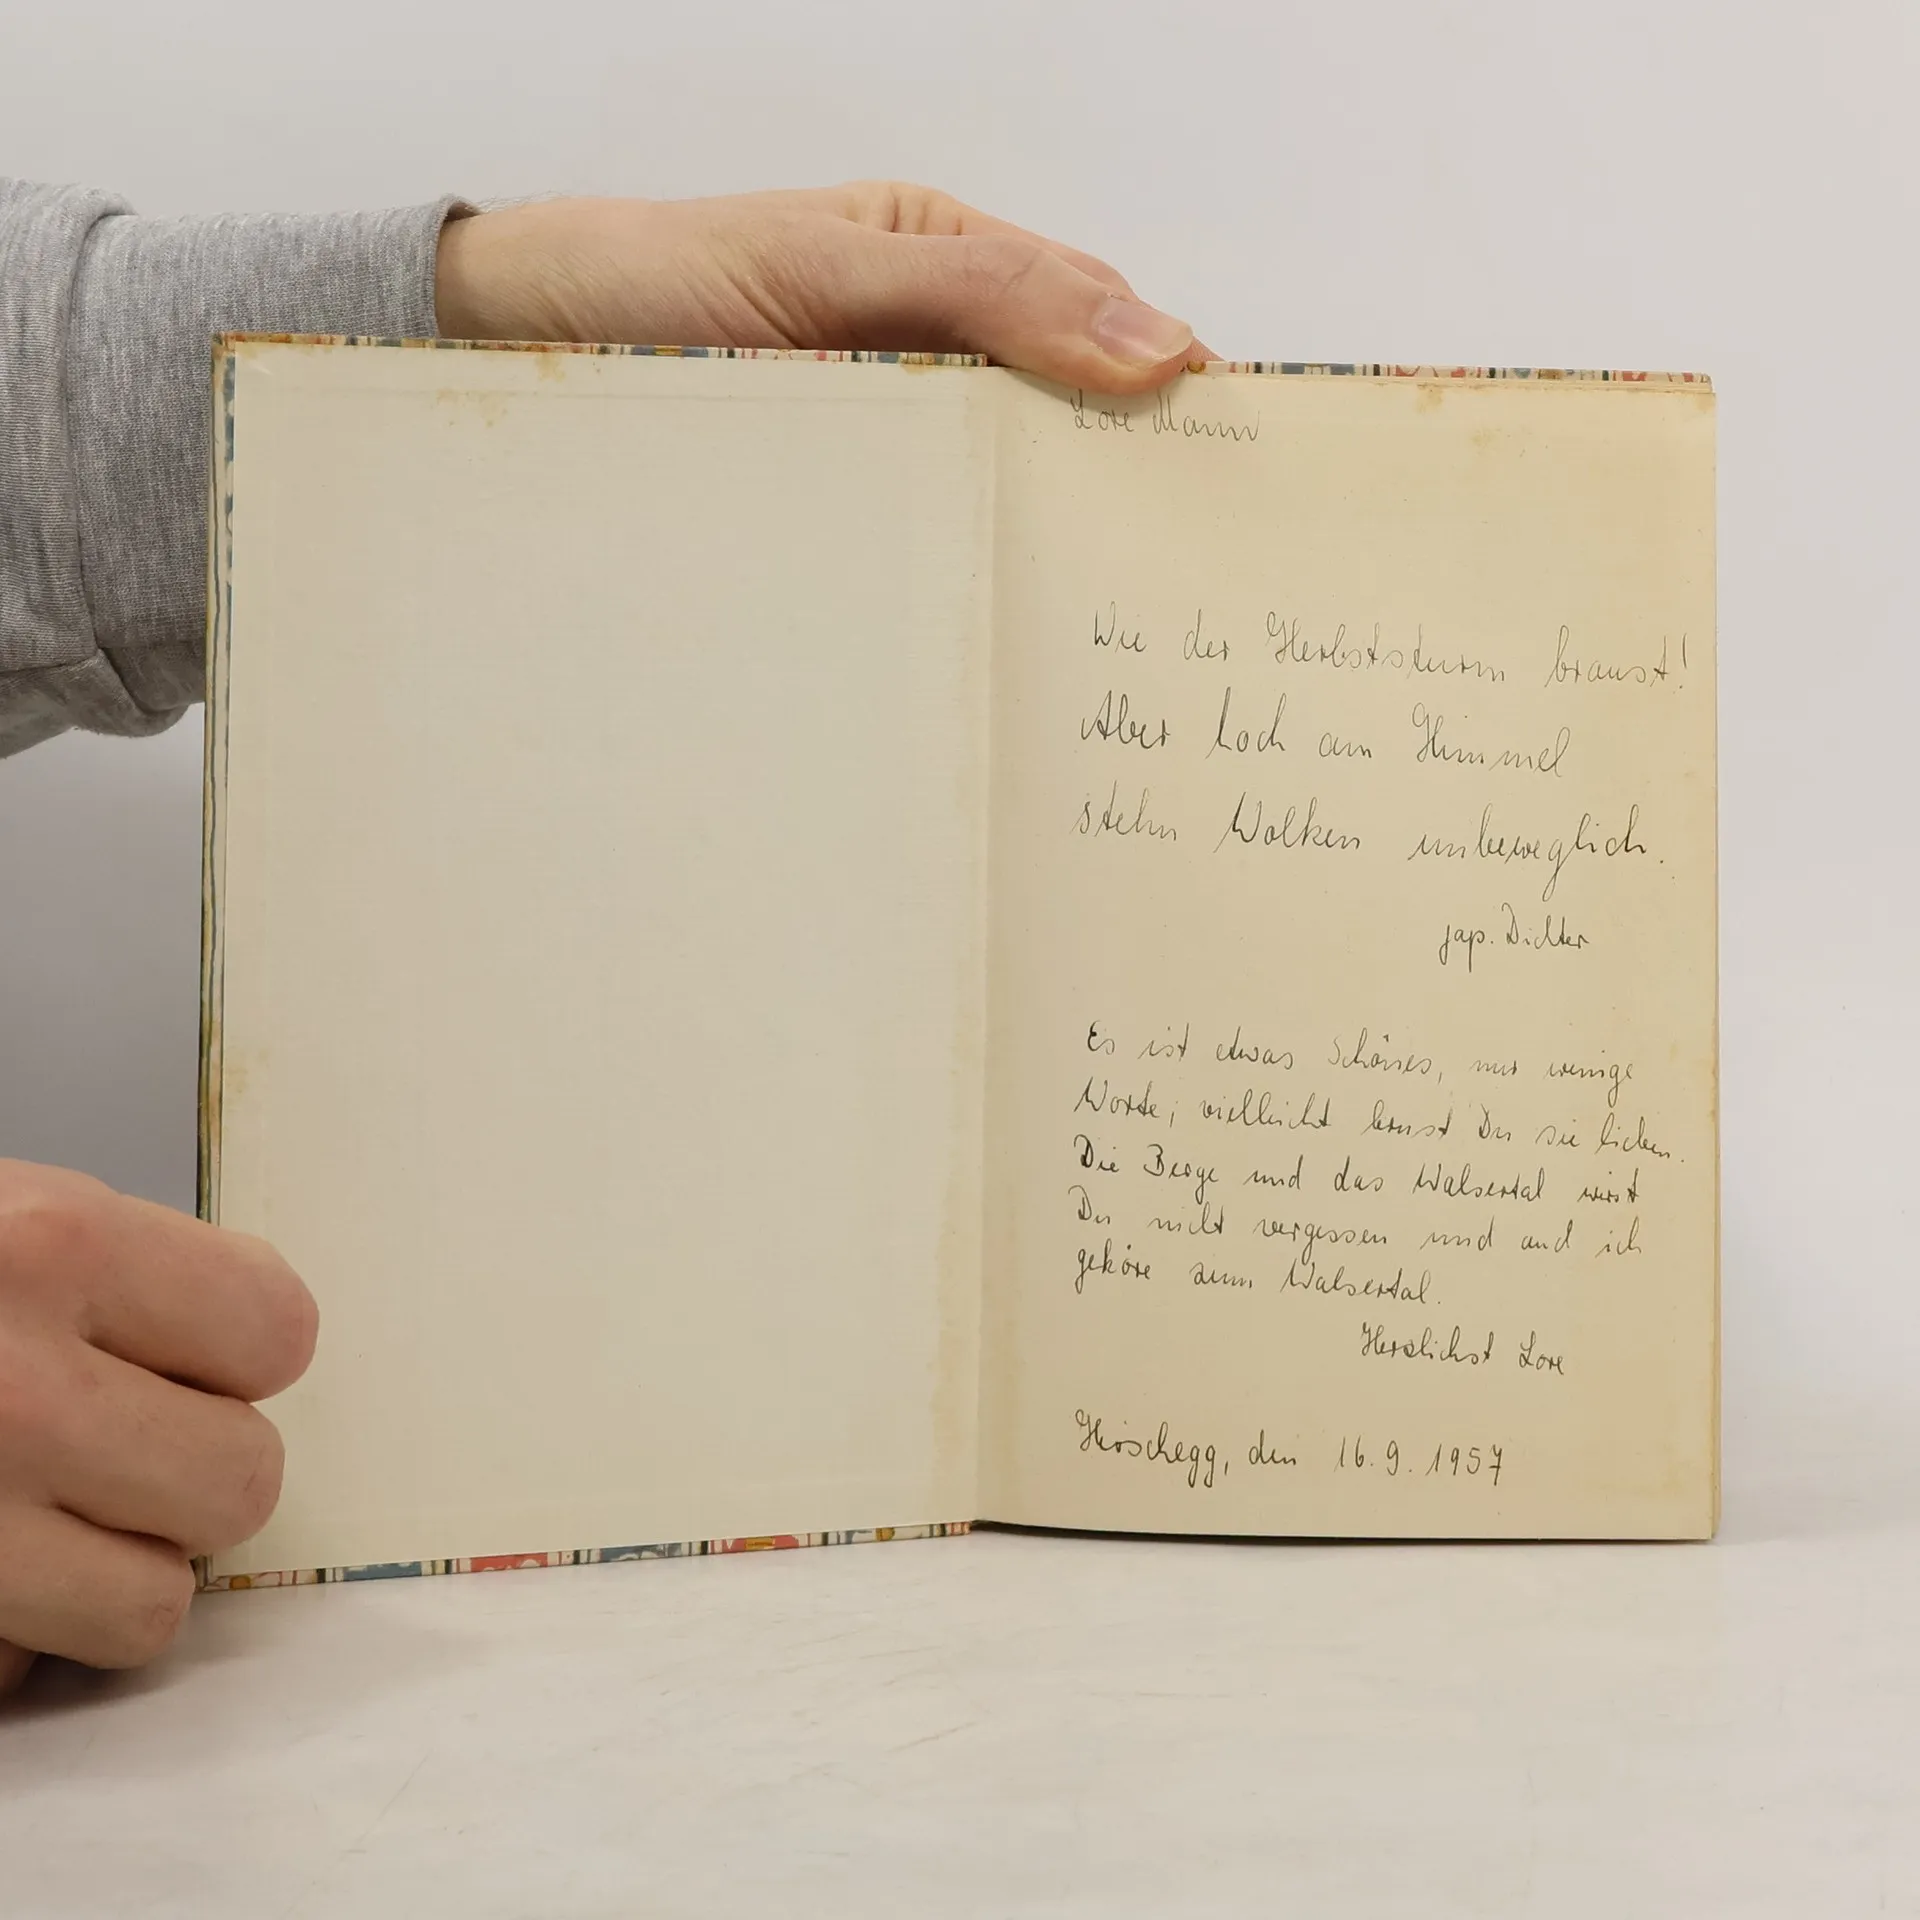 Lore Mann
Wie der Herbststurm braust!
Aber hoch am Himmel
stehn Wolken unbeweglich.
jap. Dichter
Es ist etwas Schönes, nur wenige
Worte, vielleicht lernst Du sie lieben.
Die Berge und das Walsertal wirst
Du nicht vergessen und auch ich
gehöre zum Walsertal.
Herzlichst Lore
Hirschegg, den 16.9.1957